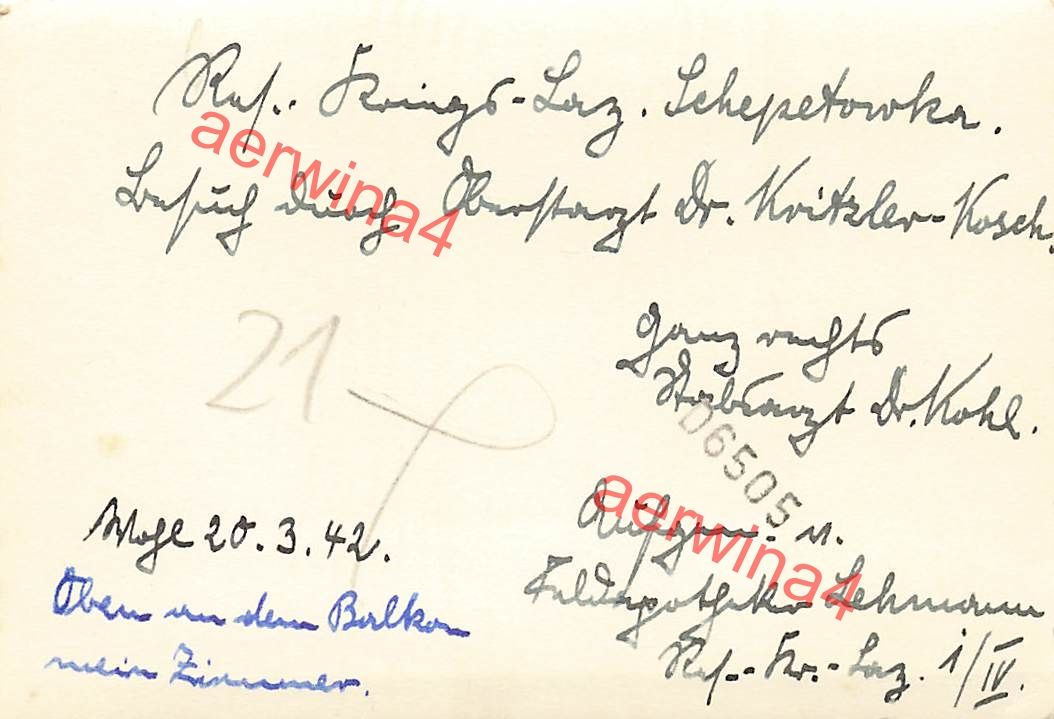 Res.. Kriegs-Laz. Schepetowka.
Besuch durch Oberstarzt Dr. Kritzler-Kosch.
aerwina4
ganz rechts
Stabsarzt Dr. Kohl.
21
D6505
Aufgen. v.
Feldapotheker Lehmann
Res.-Kr.-Laz. 1/IV.
aerwina4
Wohl 20.3.42.
Oben an dem Balkon
mein Zimmer.